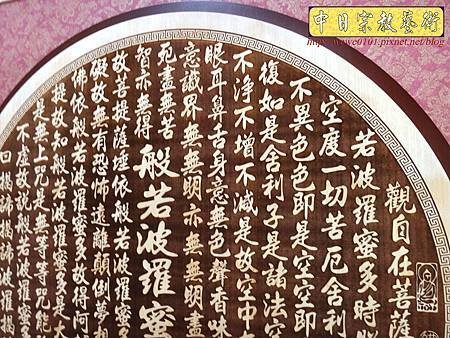 中日宗教藝術
http://wwe0101.pixnet.net/blog
觀自在菩薩
若波羅蜜多時照
空度一切苦厄舍利
不異色色即是空空即
復如是舍利子是諸法空
不淨不增不減是故空中
眼耳鼻舌身意無色聲香味
意識界無無明亦無無明盡
死盡無苦
智亦無得
般若波羅蜜
故菩提薩埵依般若波羅蜜多
礙故無有恐怖遠離顛倒夢想
佛依般若波羅蜜多故得阿
提故知般若波羅蜜多是大
是無上咒是無等等咒能
不虛故說般若波羅蜜
曰揭諦揭諦波羅揭